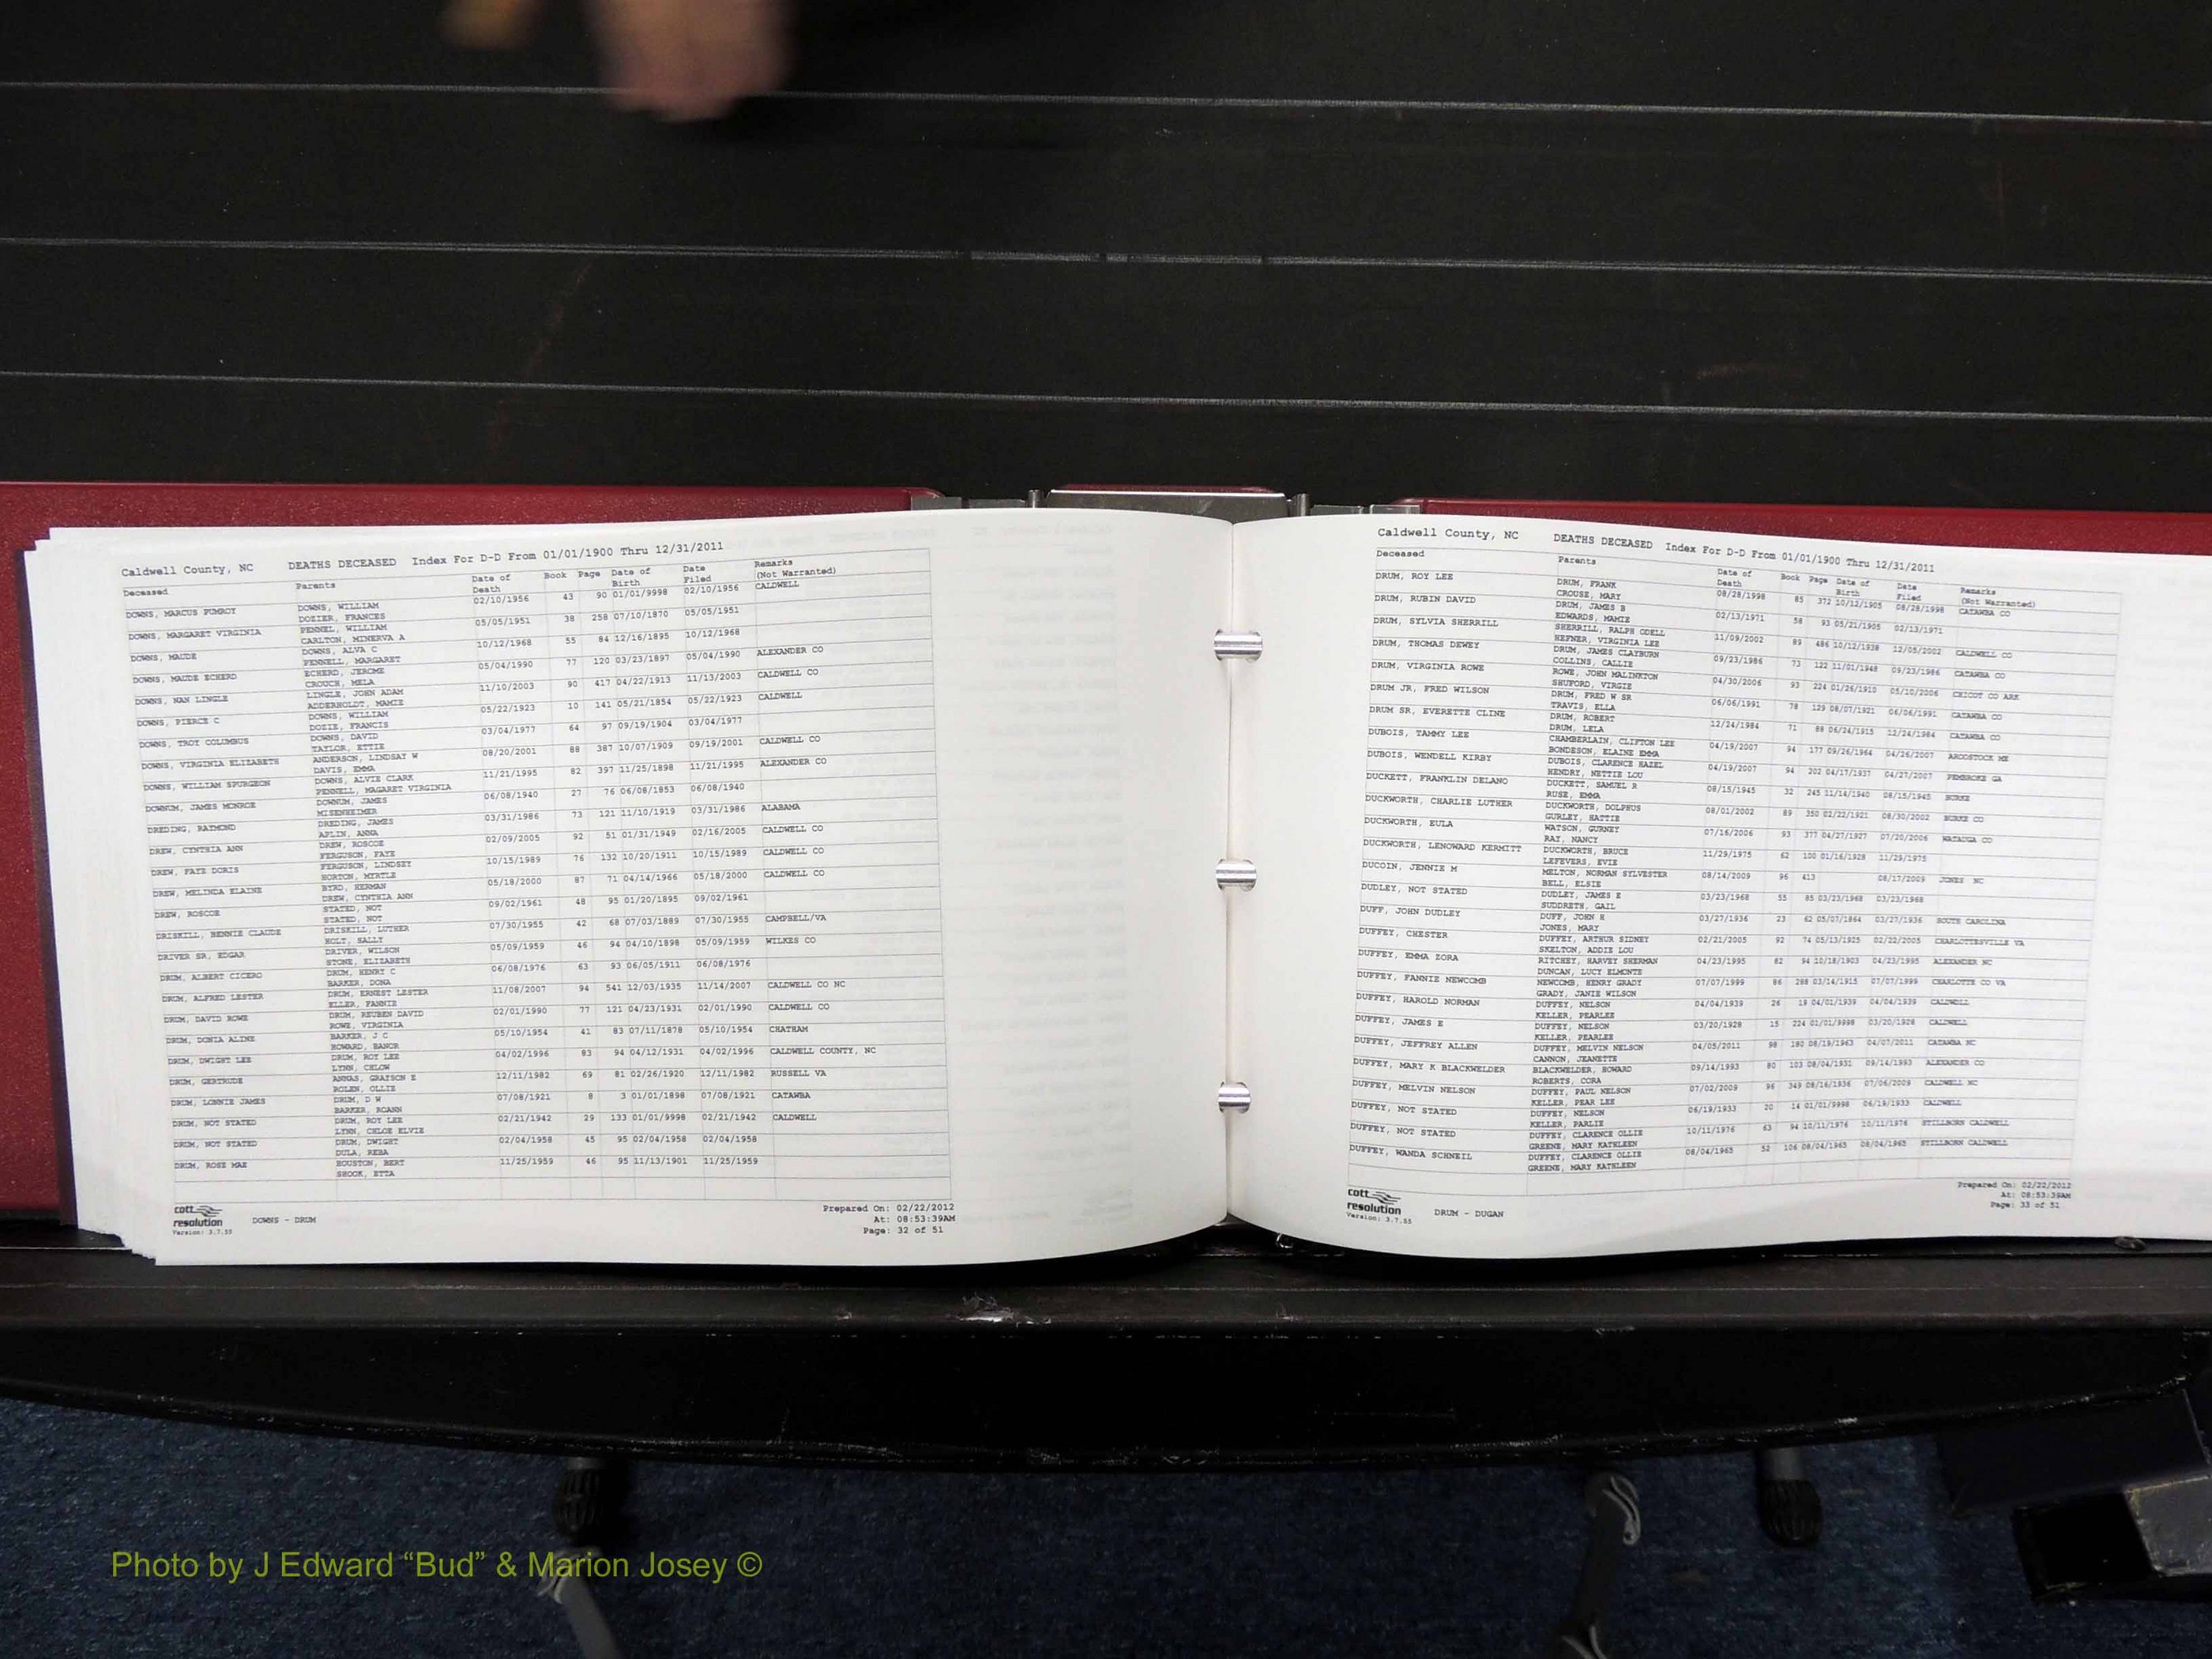 Caldwell County, NC DEATHS DECEASED Index For D-D From 01/01/1900 Thru 12/31/2011
Deceased Parents Date of Death Book Page Date of Birth Date Filed Remarks (Not Warranted)
DOWNS, MARCUS PUMROY DOWNS, WILLIAM 02/10/1956 43 90 01/01/9998 02/10/1956 CALDWELL
DOZIER, FRANCES
DOWNS, MARGARET VIRGINIA PENNEL, WILLIAM 05/05/1951 38 258 07/10/1870 05/05/1951
CARLTON, MINERVA A
DOWNS, MAUDE DOWNS, ALVA C 10/12/1968 55 84 12/16/1895 10/12/1968
PENNELL, MARGARET
DOWNS, MAUDE ECHERD ECHERD, JEROME 05/04/1990 77 120 03/23/1897 05/04/1990 ALEXANDER CO
CROUCH, MELA
DOWNS, NAN LINGLE LINGLE, JOHN ADAM 11/10/2003 90 417 04/22/1913 11/13/2003 CALDWELL CO
ADDERHOLDT, MAMIE
DOWNS, PIERCE C DOWNS, WILLIAM 05/22/1923 10 141 05/21/1854 05/22/1923 CALDWELL
DOZIE, FRANCIS
DOWNS, TROY COLUMBUS DOWNS, DAVID 03/04/1977 64 97 09/19/1904 03/04/1977
TAYLOR, ETTIE
DOWNS, VIRGINIA ELIZABETH ANDERSON, LINDSAY W 08/20/2001 88 387 10/07/1909 09/19/2001 CALDWELL CO
DAVIS, EMMA
DOWNS, WILLIAM SPURGEON DOWNS, ALVIE CLARK 11/21/1995 82 397 11/25/1898 11/21/1995 ALEXANDER CO
PENNELL, MAGARET VIRGINIA
DOWNUM, JAMES MONROE DOWNUM, JAMES 06/08/1940 27 76 06/08/1853 06/08/1940
MISENHEIMER
DREDING, RAYMOND DREDING, JAMES 03/31/1986 73 121 11/10/1919 03/31/1986 ALABAMA
APLIN, ANNA
DREW, CYNTHIA ANN DREW, ROSCOE 02/09/2005 92 51 01/31/1949 02/16/2005 CALDWELL CO
FERGUSON, FAYE
DREW, FAYE DORIS FERGUSON, LINDSEY 10/15/1989 76 132 10/20/1911 10/15/1989 CALDWELL CO
HORTON, MYRTLE
DREW, MELINDA ELAINE BYRD, HERMAN 05/18/2000 87 71 04/14/1966 05/18/2000 CALDWELL CO
DREW, CYNTHIA ANN
DREW, ROSCOE STATED, NOT 09/02/1961 48 95 01/20/1895 09/02/1961
STATED, NOT
DRISKILL, BENNIE CLAUDE DRISKILL, LUTHER 07/30/1955 42 68 07/03/1889 07/30/1955 CAMPBELL/VA
HOLT, SALLY
DRIVER SR, EDGAR DRIVER, WILSON 05/09/1959 46 94 04/10/1898 05/09/1959 WILKES CO
STONE, ELIZABETH
DRUM, ALBERT CICERO DRUM, HENRY C 06/08/1976 63 93 06/05/1911 06/08/1976
BARKER, DONA
DRUM, ALFRED LESTER DRUM, ERNEST LESTER 11/08/2007 94 541 12/03/1935 11/14/2007 CALDWELL CO NC
ELLER, FANNIE
DRUM, DAVID ROWE DRUM, REUBEN DAVID 02/01/1990 77 121 04/23/1931 02/01/1990 CALDWELL CO
ROWE, VIRGINIA
DRUM, DONIA ALINE BARKER, J C 05/10/1954 41 83 07/11/1878 05/10/1954 CHATHAM
HOWARD, BANCR
DRUM, DWIGHT LEE DRUM, ROY LEE 04/02/1996 83 94 04/12/1931 04/02/1996 CALDWELL COUNTY, NC
LYNN, CHLOW
DRUM, GERTRUDE ANNAS, GRAYSON E 12/11/1982 69 81 02/26/1920 12/11/1982 RUSSELL VA
BOLEN, OLLIE
DRUM, LONNIE JAMES DRUM, D W 07/08/1921 8 3 01/01/1898 07/08/1921 CATAWBA
BARKER, ROANN
DRUM, NOT STATED DRUM, ROY LEE 02/21/1942 29 133 01/01/9998 02/21/1942 CALDWELL
LYNN, CHLOE ELVIE
DRUM, NOT STATED DRUM, DWIGHT 02/04/1958 45 95 02/04/1958 02/04/1958
DULA, REBA
DRUM, ROSE MAE HOUSTON, BERT 11/25/1959 46 95 11/13/1901 11/25/1959
SHOOK, ETTA
cott resolution
Version: 3.7.55
DOWNS - DRUM
Prepared On: 02/22/2012
At: 08:53:39AM
Page: 32 of 51
Caldwell County, NC DEATHS DECEASED Index For D-D From 01/01/1900 Thru 12/31/2011
Deceased Parents Date of Death Book Page Date of Birth Date Filed Remarks (Not Warranted)
DRUM, ROY LEE DRUM, FRANK 08/28/1998 85 372 10/12/1905 08/28/1998 CATAWBA CO
CROUSE, MARY
DRUM, RUBIN DAVID DRUM, JAMES B 02/13/1971 58 93 05/21/1905 02/13/1971
EDWARDS, MAMIE
DRUM, SYLVIA SHERRILL SHERRILL, RALPH ODELL 11/09/2002 89 486 10/12/1938 12/05/2002 CALDWELL CO
HEFNER, VIRGINIA LEE
DRUM, THOMAS DEWEY DRUM, JAMES CLAYBURN 09/23/1986 73 122 11/01/1948 09/23/1986 CATAWBA CO
COLLINS, CALLIE
DRUM, VIRGINIA ROWE ROWE, JOHN MALINKTON 04/30/2006 93 224 01/26/1910 05/10/2006 CHICOT CO ARK
SHUFORD, VIRGIE
DRUM JR, FRED WILSON DRUM, FRED W SR 06/06/1991 78 129 08/07/1921 06/06/1991 CATAWBA CO
TRAVIS, ELLA
DRUM SR, EVERETTE CLINE DRUM, ROBERT 12/24/1984 71 88 06/24/1915 12/24/1984 CATAWBA CO
DRUM, LELA
DUBOIS, TAMMY LEE CHAMBERLAIN, CLIFTON LEE 04/19/2007 94 177 09/26/1964 04/26/2007 AROOSTOCK ME
BONDESON, ELAINE EMMA
DUBOIS, WENDELL KIRBY DUBOIS, CLARENCE HAZEL 04/19/2007 94 202 04/17/1937 04/27/2007 PEMBROKE GA
HENDRY, NETTIE LOU
DUCKETT, FRANKLIN DELANO DUCKETT, SAMUEL R 08/15/1945 32 245 11/14/1940 08/15/1945 BURKE
RUSE, EMMA
DUCKWORTH, CHARLIE LUTHER DUCKWORTH, DOLPHUS 08/01/2002 89 350 02/22/1921 08/30/2002 BURKE CO
GURLEY, HATTIE
DUCKWORTH, EULA WATSON, GURNEY 07/16/2006 93 377 04/27/1927 07/20/2006 WATAUGA CO
RAY, NANCY
DUCKWORTH, LENOWARD KERMITT DUCKWORTH, BRUCE 11/29/1975 62 100 01/16/1928 11/29/1975
LEFEVERS, EVIE
DUCOIN, JENNIE M MELTON, NORMAN SYLVESTER 08/14/2009 96 413 08/17/2009 JONES NC
BELL, ELSIE
DUDLEY, NOT STATED DUDLEY, JAMES E 03/23/1968 55 85 03/23/1968 03/23/1968
SUDDRETH, GAIL
DUFF, JOHN DUDLEY DUFF, JOHN H 03/27/1936 23 62 05/07/1864 03/27/1936 SOUTH CAROLINA
JONES, MARY
DUFFEY, CHESTER DUFFEY, ARTHUR SIDNEY 02/21/2005 92 74 05/13/1925 02/22/2005 CHARLOTTESVILLE VA
SKELTON, ADDIE LOU
DUFFEY, EMMA ZORA RITCHEY, HARVEY SHERMAN 04/23/1995 82 94 10/18/1903 04/23/1995 ALEXANDER NC
DUNCAN, LUCY ELMONTE
DUFFEY, FANNIE NEWCOMB NEWCOMB, HENRY GRADY 07/07/1999 86 298 03/14/1915 07/07/1999 CHARLOTTE CO VA
GRADY, JANIE WILSON
DUFFEY, HAROLD NORMAN DUFFEY, NELSON 04/04/1939 26 19 04/01/1939 04/04/1939 CALDWELL
KELLER, PEARLEE
DUFFEY, JAMES E DUFFEY, NELSON 03/20/1928 15 224 01/01/9998 03/20/1928 CALDWELL
KELLER, PEARLEE
DUFFEY, JEFFREY ALLEN DUFFEY, MELVIN NELSON 04/05/2011 98 180 08/19/1963 04/07/2011 CATAWBA NC
CANNON, JEANETTE
DUFFEY, MARY K BLACKWELDER BLACKWELDER, HOWARD 09/14/1993 80 103 08/04/1931 09/14/1993 ALEXANDER CO
ROBERTS, CORA
DUFFEY, MELVIN NELSON DUFFEY, PAUL NELSON 07/02/2009 96 349 08/16/1936 07/06/2009 CALDWELL NC
KELLER, PEAR LEE
DUFFEY, NOT STATED DUFFEY, NELSON 06/19/1933 20 14 01/01/9998 06/19/1933 CALDWELL
KELLER, PARLIE
DUFFEY, NOT STATED DUFFEY, CLARENCE OLLIE 10/11/1976 63 94 10/11/1976 10/11/1976 STILLBORN CALDWELL
GREENE, MARY KATHLEEN
DUFFEY, WANDA SCHNEIL DUFFEY, CLARENCE OLLIE 08/04/1965 52 106 08/04/1965 08/04/1965 STILLBORN CALDWELL
GREENE, MARY KATHLEEN
cott resolution
Version: 3.7.55
DRUM - DUGAN
Prepared On: 02/22/2012
At: 08:53:39AM
Page: 33 of 51
Photo by J Edward “Bud” & Marion Josey ©